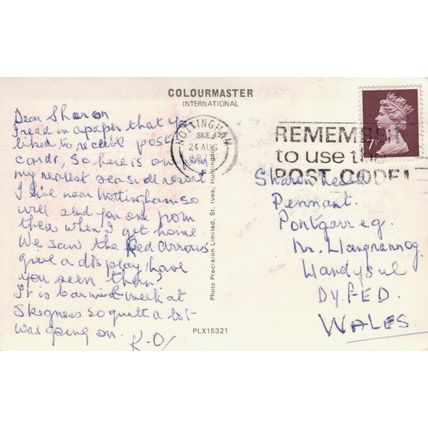 COLOURMASTER
INTERNATIONAL
Dear Sharon
I read in a paper that you
liked to receive post
cards, So here is one from
my nearest sea side resort
I live near Nottingham so
will send you one from
there when I get home
We saw the Red Arrows
give a display have
you seen them?
It is carnival week at
Skegness so quite a lot
was going on. K.O/
Photo Precision Limited, St. Ives, Huntingdon
PLX15321
NOTTINGHAM
24 AUG
REMEMBER
to use the
POST CODE!
7
Sharon
Pennant.
Pontgarreg.
Nr. Llangrannog
Llandysul
DYFED.
WALES.